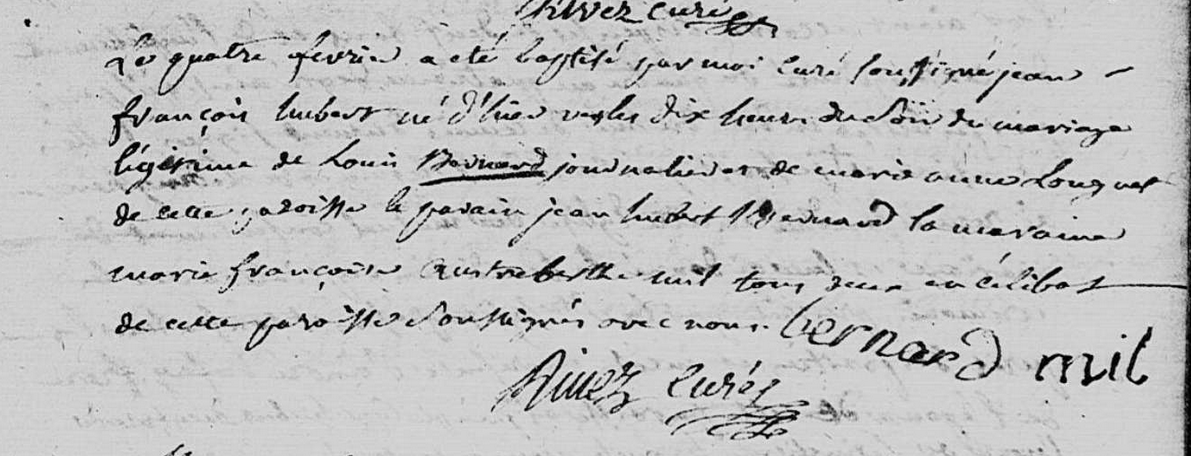 Rivez curé
Le quatre fevrie a eté baptisé par moi curé soussigné jean
françois hubert né d'hier vers les dix heures du soir du mariage
légitime de Louis Bernard journalier et de marie anne Longuet
de cette paroisse le parain jean hubert Bernard la maraine
marie françoise austreberthe mil tous deux en célibat
de cette paroisse soussignés avec nous. bernard mil
Rivez curé